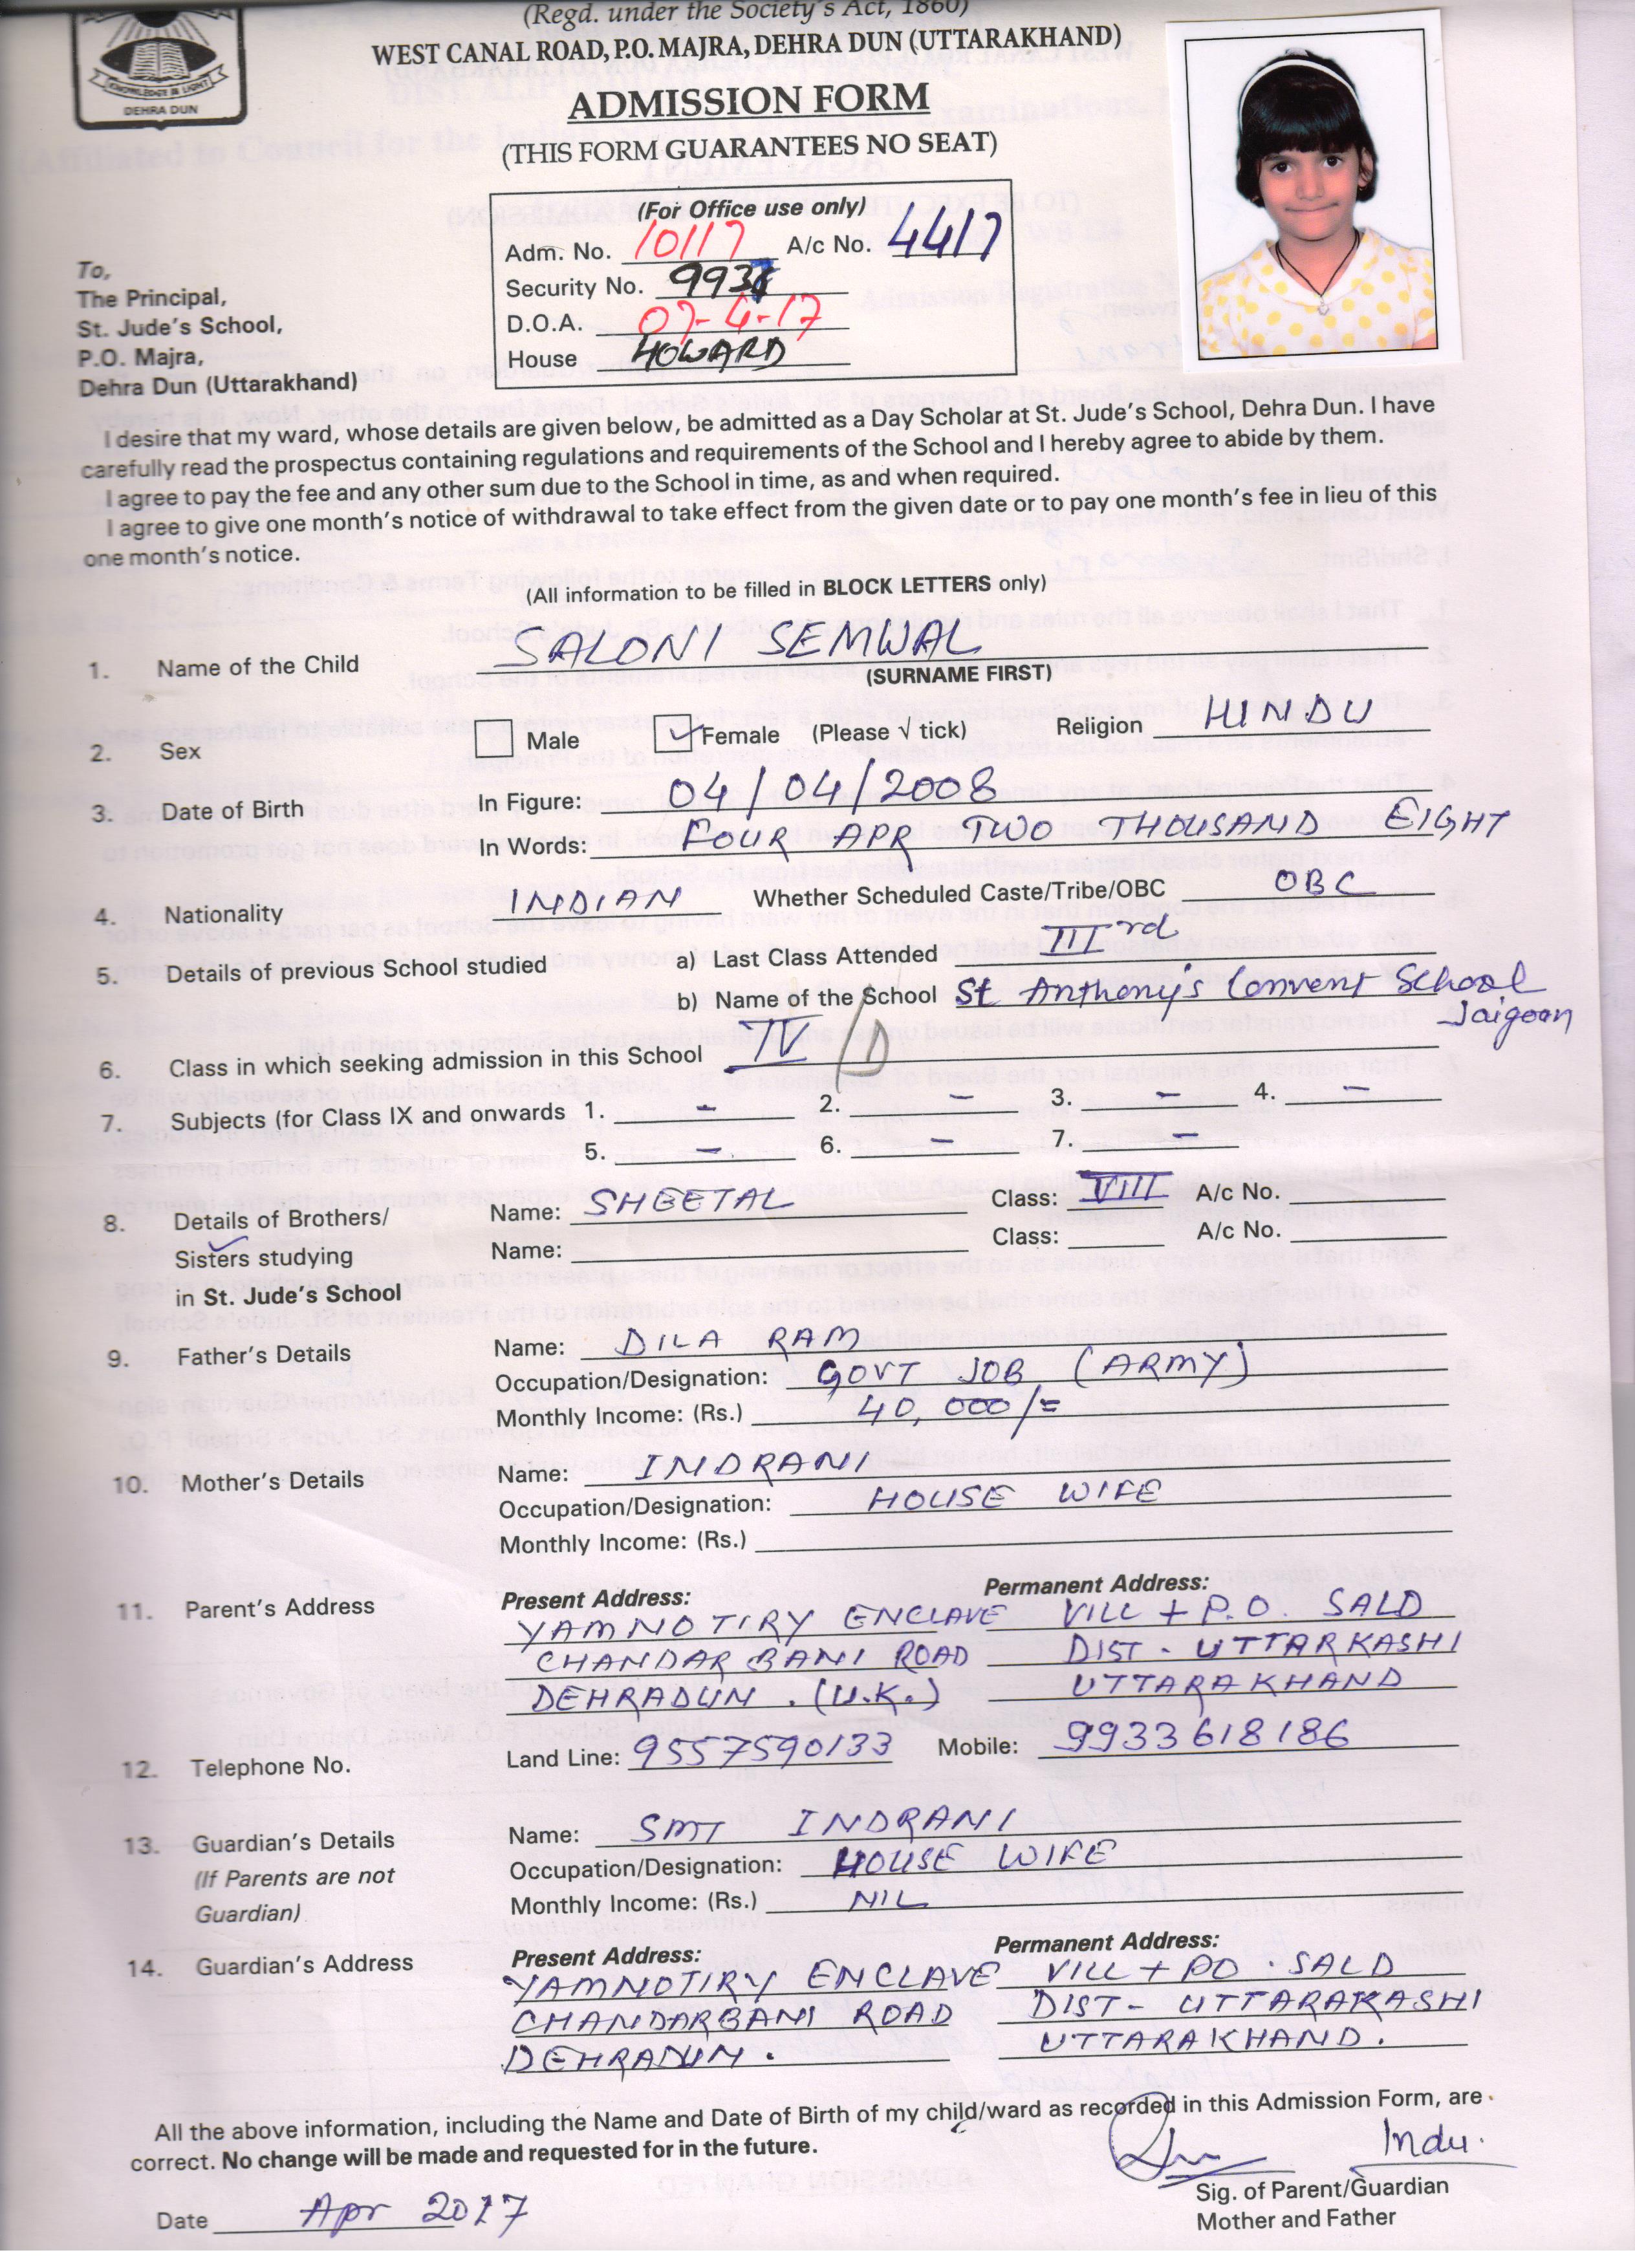 (Regd. under the Society's Act, 1860)
WEST CANAL ROAD, P.O. MAJRA, DEHRA DUN (UTTARAKHAND)
KNOWLEDGE IS LIGHT
DEHRA DUN
ADMISSION FORM
(THIS FORM GUARANTEES NO SEAT)
(For Office use only)
Adm. No. 10117 A/c No. 4417
Security No. 993
D.O.A. 07-4-17
House HOWARD
To,
The Principal,
St. Jude's School,
P.O. Majra,
Dehra Dun (Uttarakhand)
I desire that my ward, whose details are given below, be admitted as a Day Scholar at St. Jude's School, Dehra Dun. I have
carefully read the prospectus containing regulations and requirements of the School and I hereby agree to abide by them.
I agree to pay the fee and any other sum due to the School in time, as and when required.
I agree to give one month's notice of withdrawal to take effect from the given date or to pay one month's fee in lieu of this
one month's notice.
(All information to be filled in BLOCK LETTERS only)
1. Name of the Child SALONI SEMWAL
(SURNAME FIRST)
2. Sex Male Female (Please √ tick) Religion HINDU
3. Date of Birth In Figure: 04/04/2008
In Words: FOUR APR TWO THOUSAND EIGHT
4. Nationality INDIAN Whether Scheduled Caste/Tribe/OBC OBC
5. Details of previous School studied a) Last Class Attended IIIrd
b) Name of the School St Anthony's Convent School
Jaigaon
6. Class in which seeking admission in this School IV /D
7. Subjects (for Class IX and onwards 1. - 2. - 3. - 4. -
5. - 6. - 7. -
8. Details of Brothers/ Name: SHEETAL Class: VIII A/c No.
Sisters studying Name: Class: A/c No.
in St. Jude's School
9. Father's Details Name: DILA RAM
Occupation/Designation: GOVT JOB (ARMY)
Monthly Income: (Rs.) 40,000/=
10. Mother's Details Name: INDRANI
Occupation/Designation: HOUSE WIFE
Monthly Income: (Rs.)
11. Parent's Address Present Address: Permanent Address:
YAMNOTIRY ENCLAVE VILL + P.O. SALD
CHANDAR BANI ROAD DIST - UTTARKASHI
DEHRADUN. (U.K.) UTTARAKHAND
12. Telephone No. Land Line: 9557590133 Mobile: 9933618186
13. Guardian's Details Name: SMT INDRANI
(If Parents are not Occupation/Designation: HOUSE WIFE
Guardian) Monthly Income: (Rs.) NIL
14. Guardian's Address Present Address: Permanent Address:
YAMNOTIRY ENCLAVE VILL + PO. SALD
CHANDARBANI ROAD DIST- UTTARAKASHI
DEHRADUN. UTTARAKHAND.
All the above information, including the Name and Date of Birth of my child/ward as recorded in this Admission Form, are
correct. No change will be made and requested for in the future.
Indu.
Sig. of Parent/Guardian
Mother and Father
Date Apr 2017